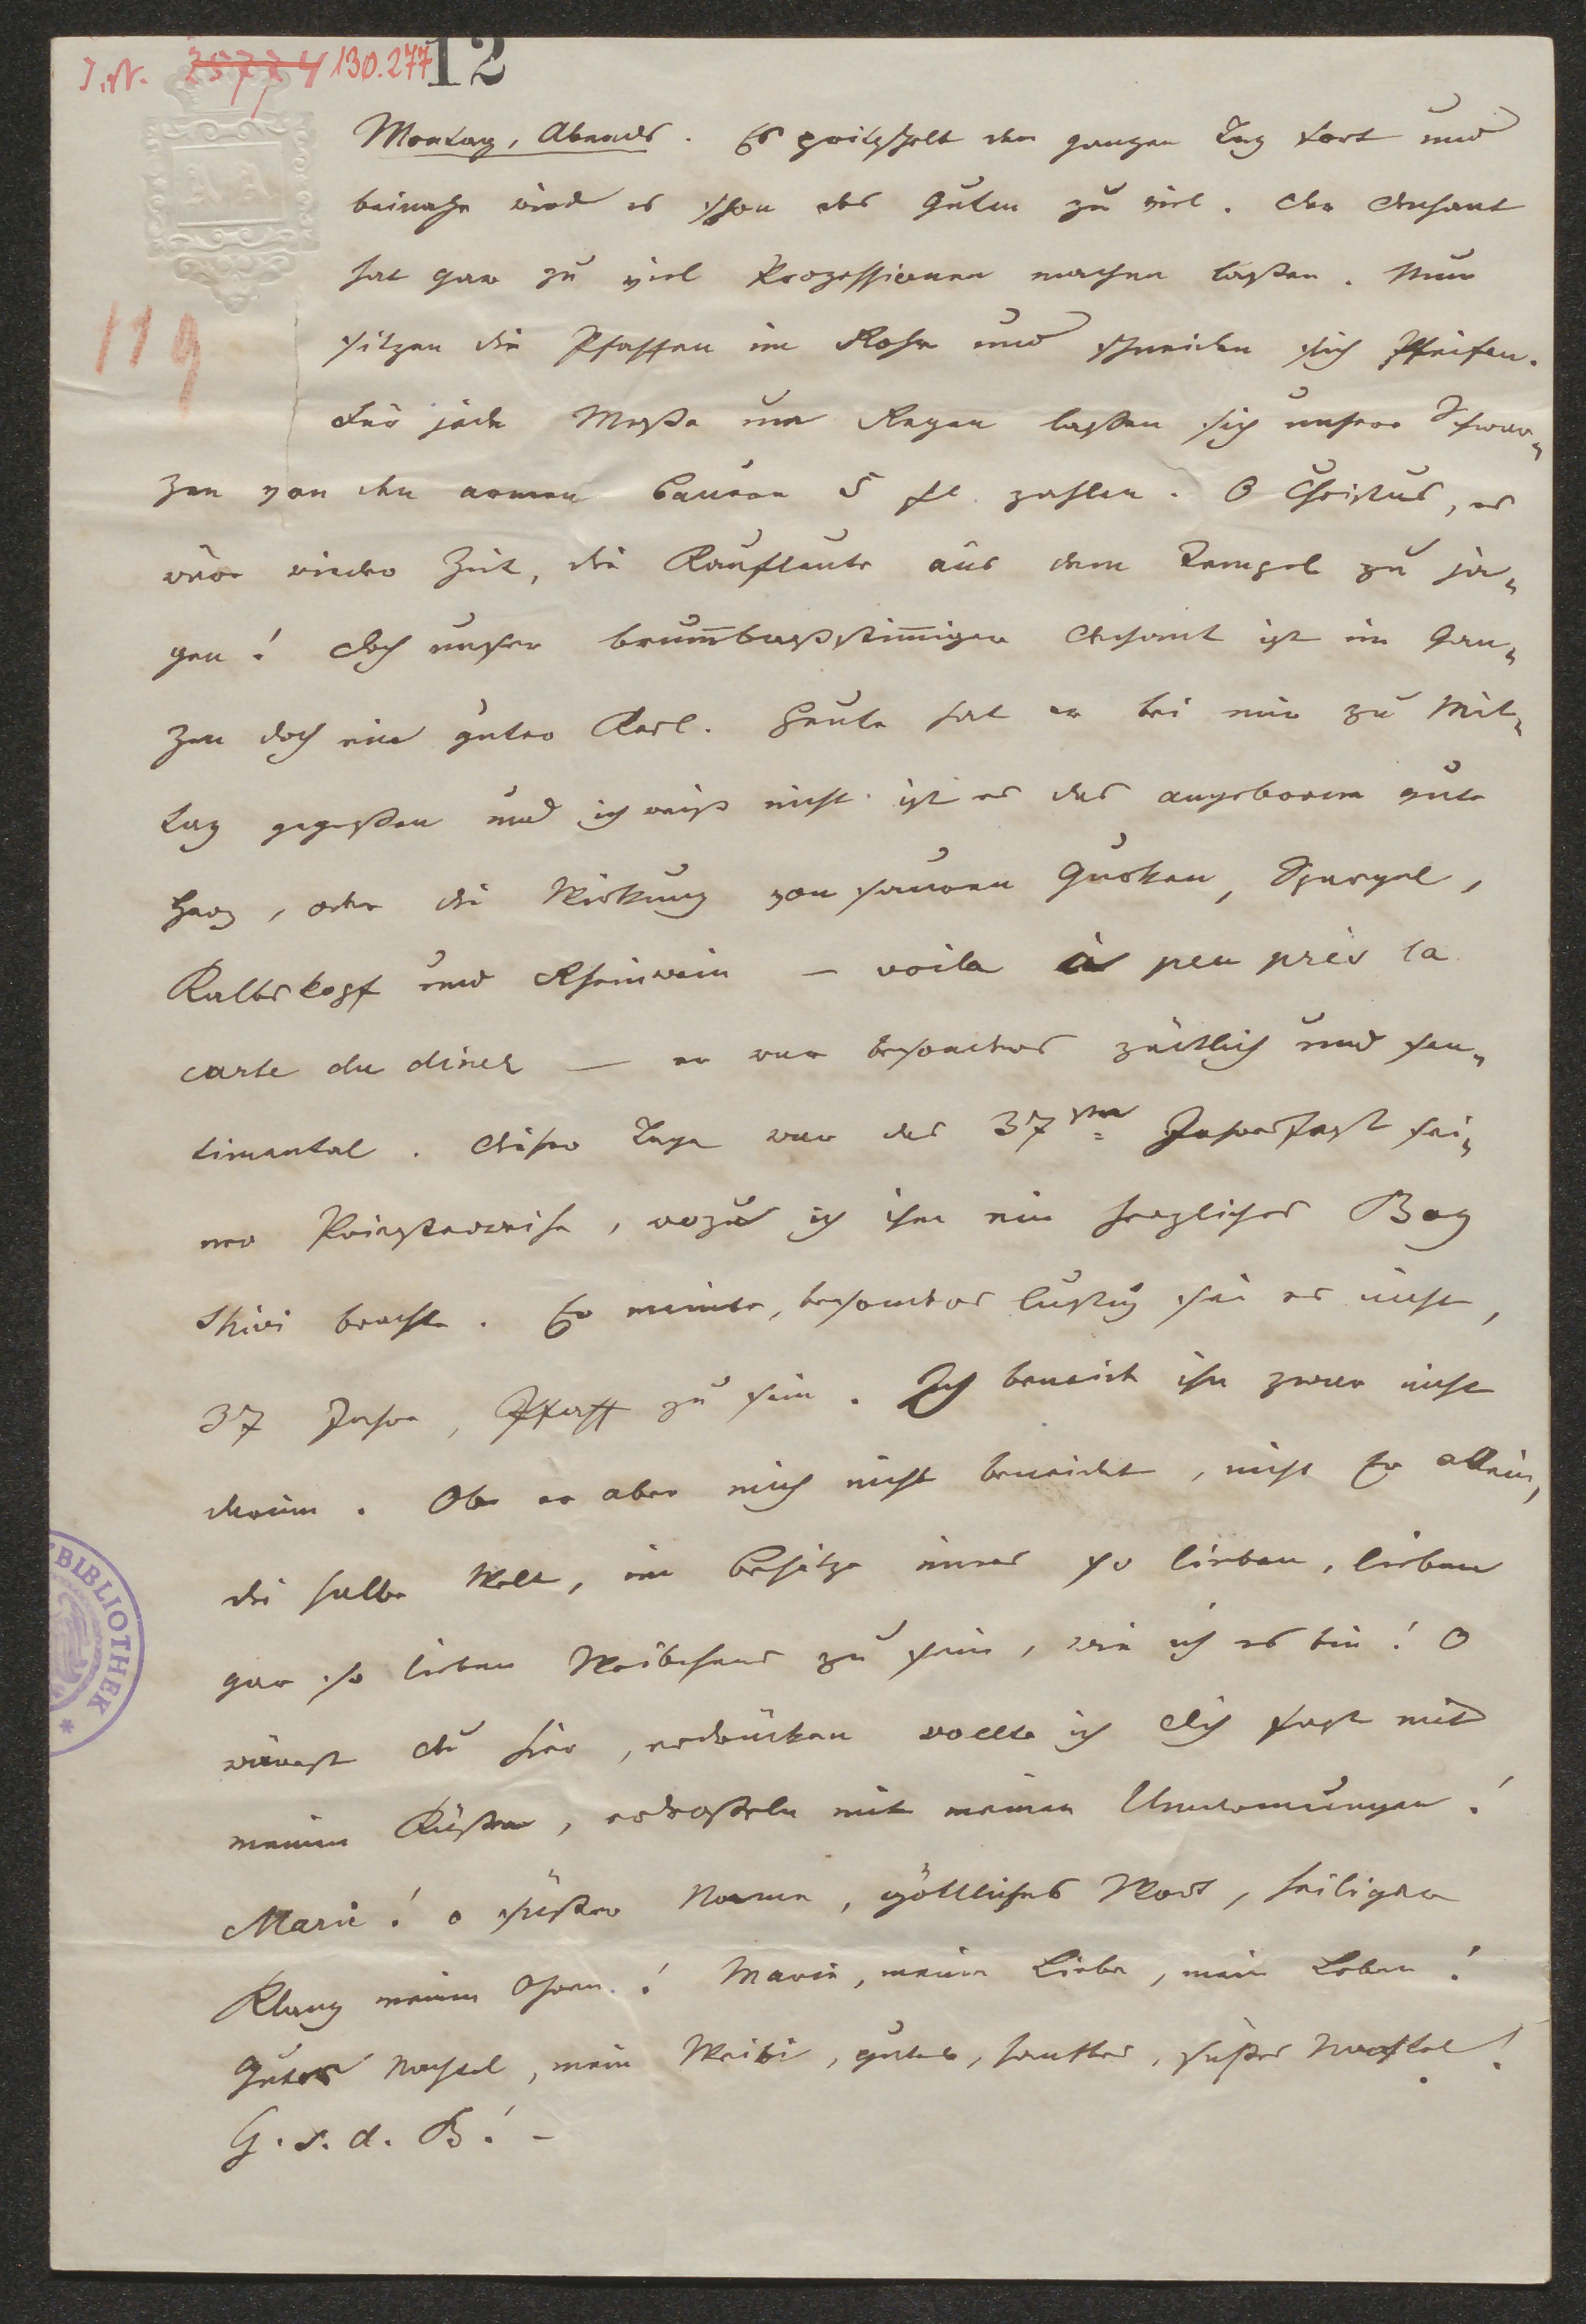 J.N. 25774 130.277 12
Montag, Abends. Es spitzhelt den ganzen Tag fort und
119
beinahe wird es schon des Guten zu viel. Der Dechant
hat gar zu viel Prozessionen machen laßen. Nun
sitzen die Pfaffen im Rohr und schneiden sich Pfeifen.
Für jede Meße um Regen laßen sich unsere Schwar-
zen von den armen Bauern 5 fl. zahlen. O Christus, es
wär wieder Zeit, die Kaufleute aus dem Tempel zu ja-
gen! Doch unser brum̅baßstim̅iger Dechant ist im Gan-
zen doch ein guter Kerl. Heute hat er bei mir zu Mit-
tag gegeßen und ich weiß nicht ist es das angeborne gute
Herz, oder die Wirkung von sauren Gurken, Spargel,
Kalbskopf und Rheinwein — voila à peu près la
carte du diner — er war besonders zärtlich und sen-
timental. Dieser Tage war das 37ste Jahresfest sei-
ner Priesterweihe, wozu ich ihm ein herzliches Bog
Shivi brachte. Er meinte, besonders lustig sei es nicht,
37 Jahre, Pfaff zu sein. Ich beneide ihn zwar nicht
darum. Ob er aber mich nicht beneidet, nicht Er allein,
die halbe Welt, im Besitze eines so lieben, lieben
gar so lieben Weibchens zu sein, wie ich es bin! O
wärest du hier, erdrücken wollte ich Dich fast mit
meinen Küßen, erdroßeln mit meinen Umarmungen!
Marie! o süßer Name, göttliches Wort, heiliger
Klang meinen Ohren! Marie, meine Liebe, mein Leben!
Gute Nachtel, mein Weibi, gutes, sanftes, süßes Nachtel!
G. s. d. B! –
BIBLIOTHEK